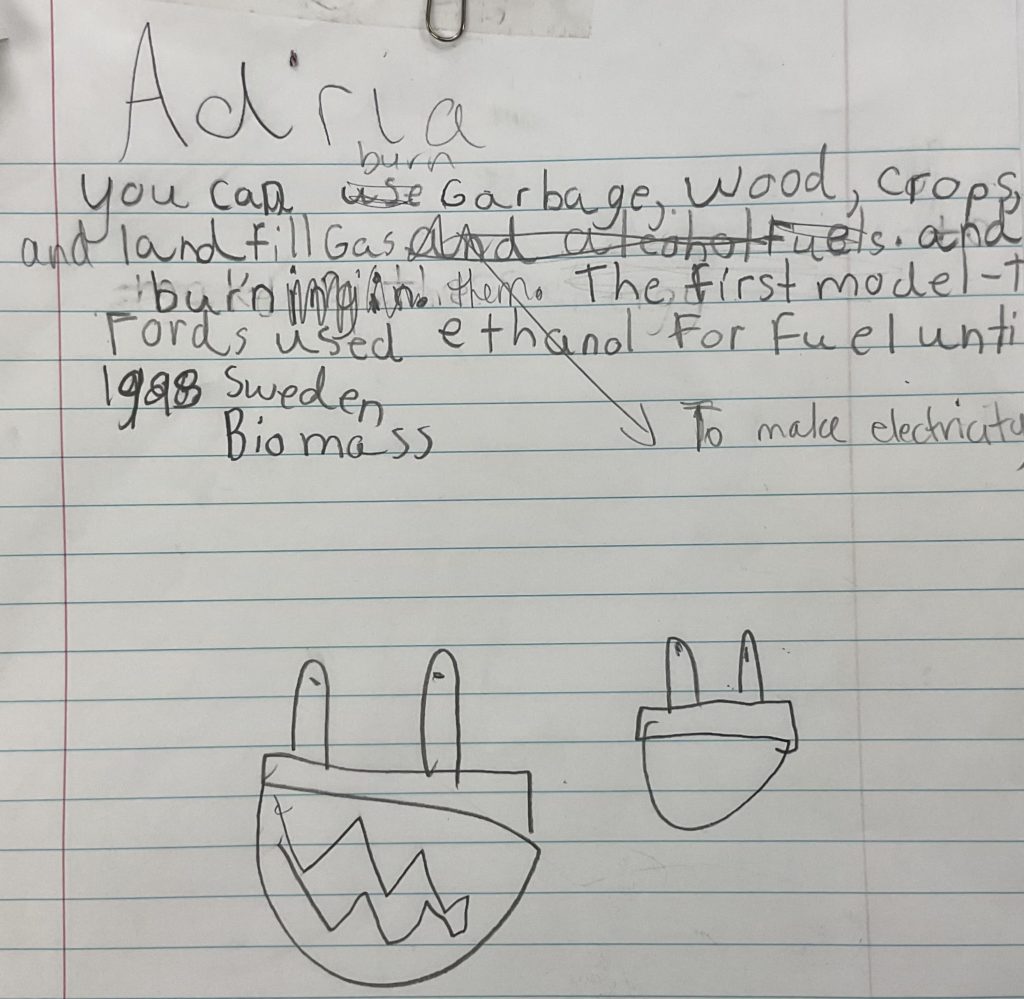 Adria
burn
you can use Garbage, Wood, crops,
and landfill Gas and alcohol fuels. and
burn them. The first model-T
Fords used ethanol For Fuel unti
Sweden
Biomass
To make electricity